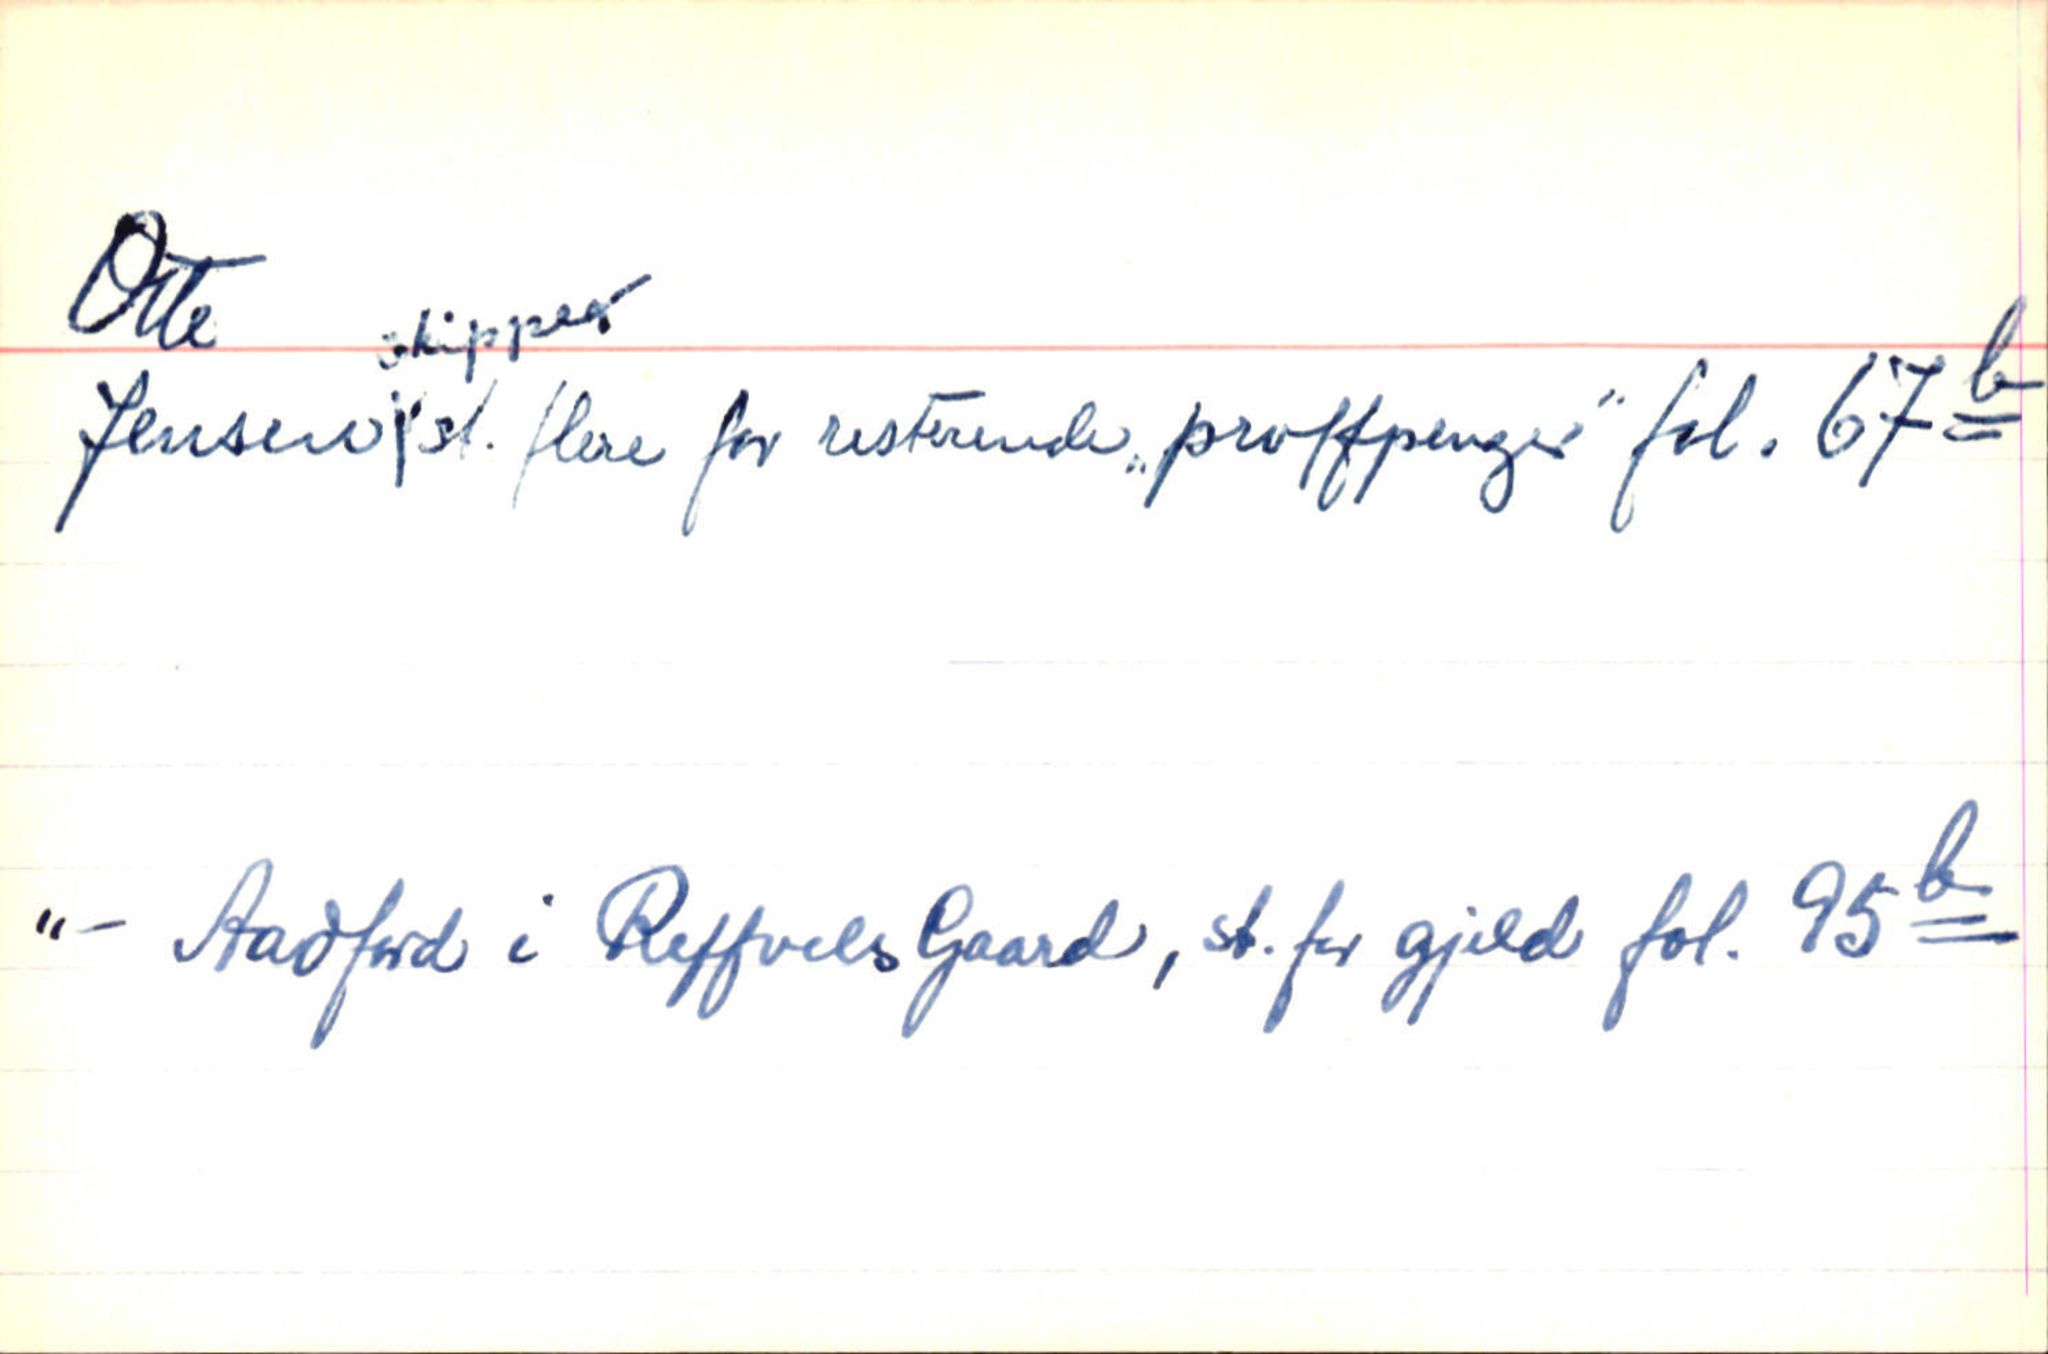 Otte
skipper
Jensen, st. flere for resterende „proffpenger" fol. 67b
"- Aadford i Reffvels Gaard, st. for gjeld fol. 95b